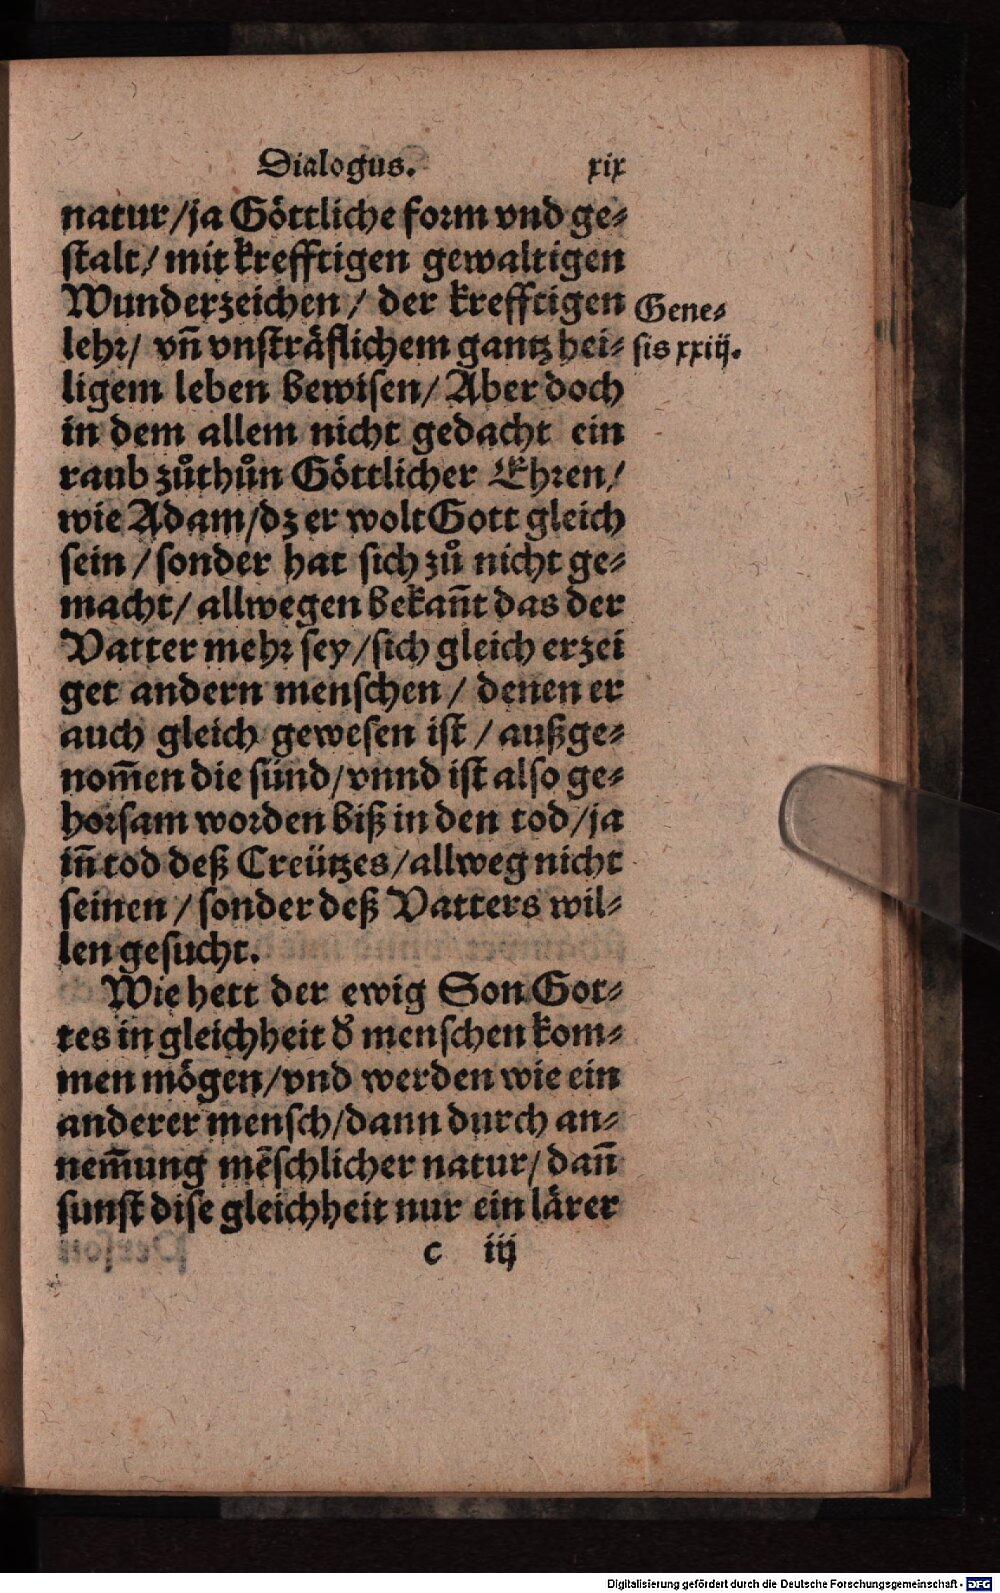 Dialogus. xix
natur/ja Göttliche form vnd ge⸗
stalt/ mit krefftigen gewaltigen
Wunderzeichen/ der krefftigen
Gene⸗
lehr/ vn̄ vnsträflichem gantz hei⸗
sis xxiij.
ligem leben bewisen/ Aber doch
in dem allem nicht gedacht ein
raub zůthůn Göttlicher Ehren/
wie Adam/dz er wolt Gott gleich
sein/sonder hat sich zů nicht ge⸗
macht/ allwegen bekan̄t das der
Vatter mehr sey/sich gleich erzei
get andern menschen/ denen er
auch gleich gewesen ist/außge⸗
nom̄en die sünd/vnnd ist also ge⸗
horsam worden biß in den tod/ja
in̄ tod deß Creützes/allweg nicht
seinen/sonder deß Vatters wil⸗
len gesucht.
Wie hett der ewig Son Got⸗
tes in gleichheit d̕ menschen kom⸗
men mögen/vnd werden wie ein
anderer mensch/dann durch an⸗
nem̄ung mẽschlicher natur/ dan̄
sunst dise gleichheit nur ein lärer
c iij
Digitalisierung gefördert durch die Deutsche Forschungsgemeinschaft - DFG